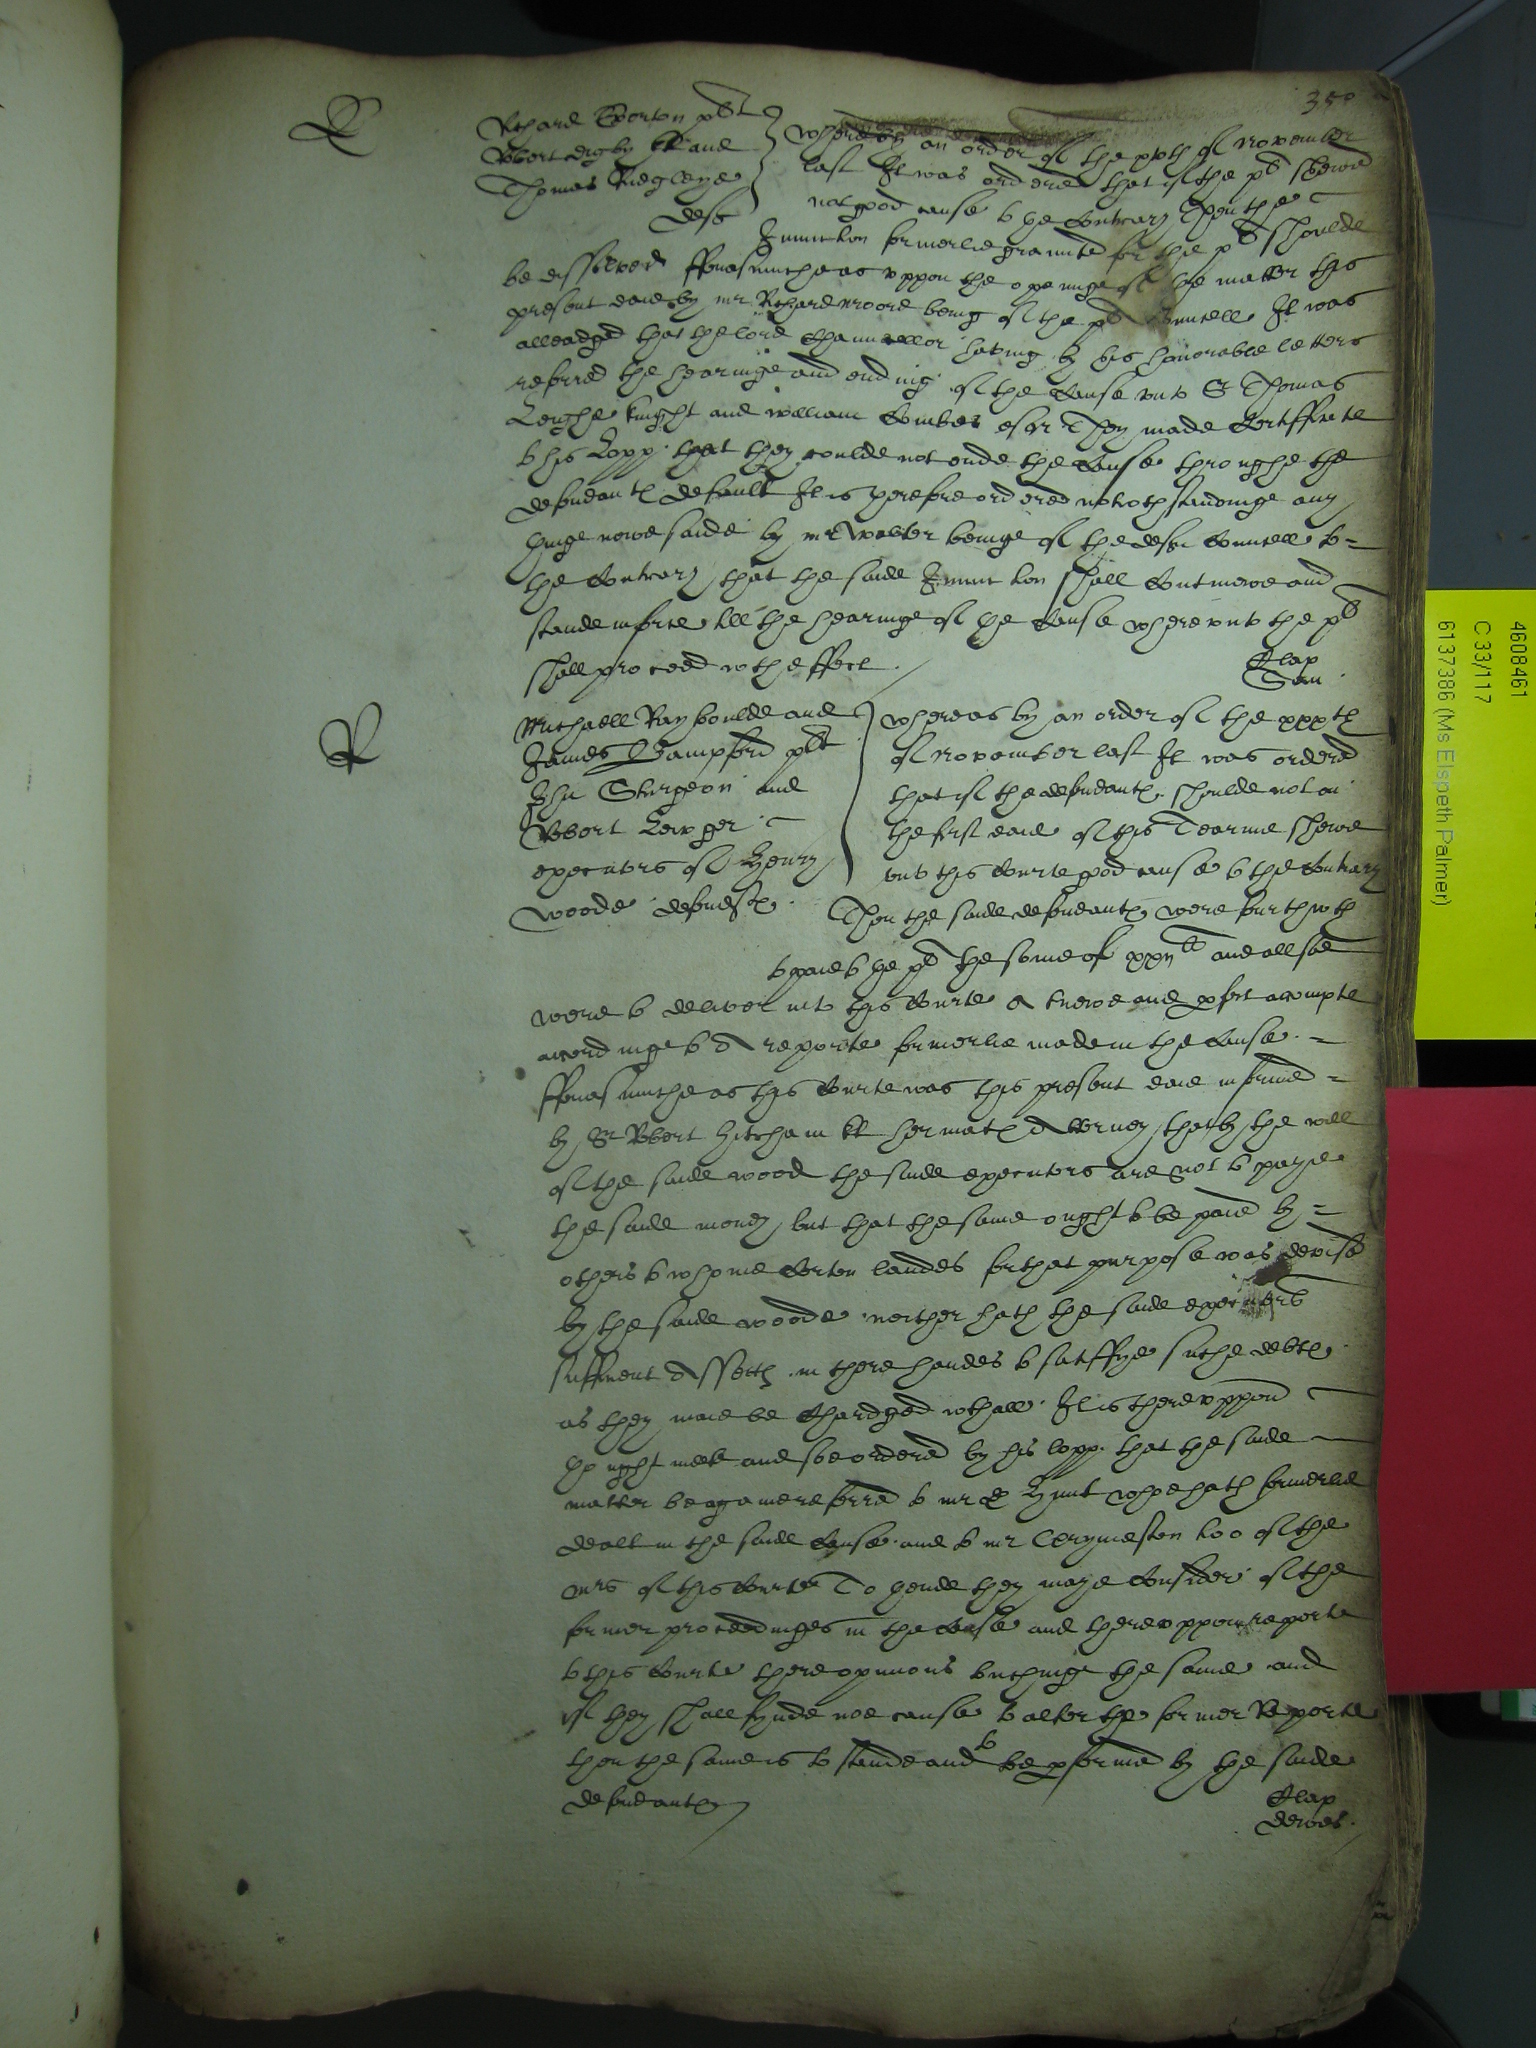 350
R
Richard Egerton pl
Robert Digby kt and
Thomas Ridgleye
deft
Whereas by an order of the xxvth of November
last It was ordered that if the pl shewed
not good cause to the Contrary Then the
Iniunction formerlie graunted for the pl shoulde
be dissolved fforasmuche as vppon the openinge of the matter this
present daie by mr Richard Moore being of the pl Councell It was
alleadged that the lord Chauncellor having by his honorable letters
referred the hearinge and ending of the Cause vnto Sr Thomas
Leighe knight and William Combes esqr They made Certifficate
to his Lopp. that they coulde not ende the Cause throughe the
defendantes default It is therefore ordered notwthstandinge any
thinge nowe saide by mr Walter beinge of the deftes Councell to =
the Contrary that the saide Iniunction shall Contineue and
stande in force till the hearinge of the Cause wherevnto the pl
shall proceed wth effect.
Clap
San
R
Michaell Rayboulde and
James Bampford plt
John Sturgeon and
Robert Lewger
executors of Henry
Woode defendtes
Whereas by an order of the xxxth
of November last It was ordered
that if the defendantes shoulde not on
the first daie of this Tearme shewe
vnto this Courte good cause to the Contrary
Then the saide defendantes were furthwth
to paie to the pl the some of xxjli and allsoe
were to deliver into this Courte a trewe and perfect accompte
accordinge to a reporte formerlie made in the Cause =
fforasmuche as this Courte was this present daie informed =
by Sr Robert Hitcham kt her mates Atturney that by the will
of the saide wood the saide executors are not to paye
the saide money but that the same ought to be paid by =
others to whome Certen landes for that purpose was devised
by the saide woode neither hath the saide executors
sufficient Assettes in there handes to satisffye suche debtes
as they maie be Chardged wthall. It is therevppon
thought meete and soe ordered by his lopp. that the saide
matter be againe referred to mr D Hunt whoe hath formerlie
dealt in the saide Cause and to mr Crymeston too of the
mrs of this Courte To thende they maye Consider of the
former proceedinges in the Cause and therevppon reporte
to this Courte there opinions tuchinge the same and
if they shall fynde noe cause to alter the former Reporte
then the same is to stande and to be performed by the saide
defendantes
Clap
Dewes.
4608461
C 33/117
6137386 (Ms Elspeth Palmer)